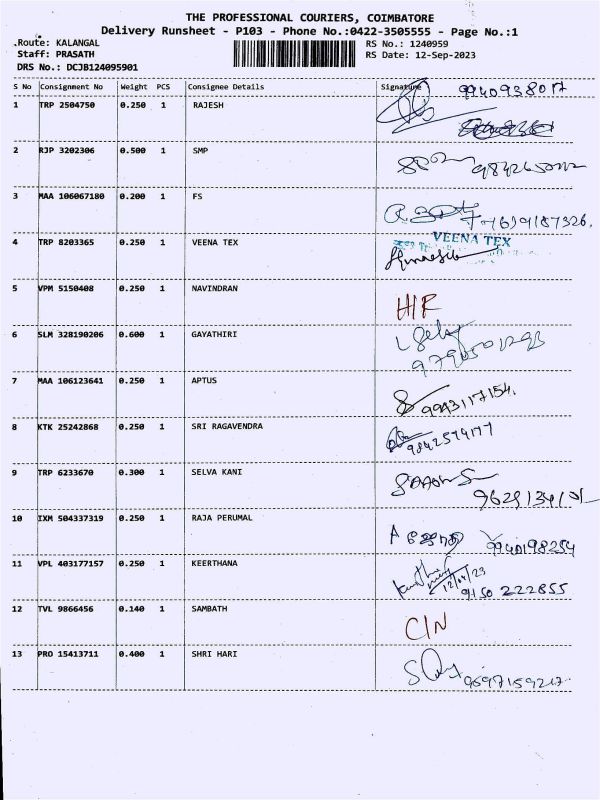 THE PROFESSIONAL COURIERS, COIMBATORE
Delivery Runsheet - P103 - Phone No.:0422-3505555 - Page No.:1
.Route: KALANGAL RS No.: 1240959
Staff: PRASATH RS Date: 12-Sep-2023
DRS No.: DCJB124095901
S No Consignment No Weight PCS Consignee Details Signature
9940938017
1 TRP 2504750 0.250 1 RAJESH
2 RJP 3202306 0.500 1 SMP
3 MAA 106067180 0.200 1 FS
7619187326.
4 TRP 8203365 0.250 1 VEENA TEX
VEENA TEX
5 VPM 5150408 0.250 1 NAVINDRAN
H/R
6 SLM 328190206 0.600 1 GAYATHIRI
7 MAA 106123641 0.250 1 APTUS
9943117154.
8 KTK 25242868 0.250 1 SRI RAGAVENDRA
9842574177
9 TRP 6233670 0.300 1 SELVA KANI
10 IXM 504337319 0.250 1 RAJA PERUMAL
9940198254
11 VPL 403177157 0.250 1 KEERTHANA
12/09/23
9150 222855
12 TVL 9866456 0.140 1 SAMBATH
C/N
13 PRO 15413711 0.400 1 SHRI HARI
9597159217